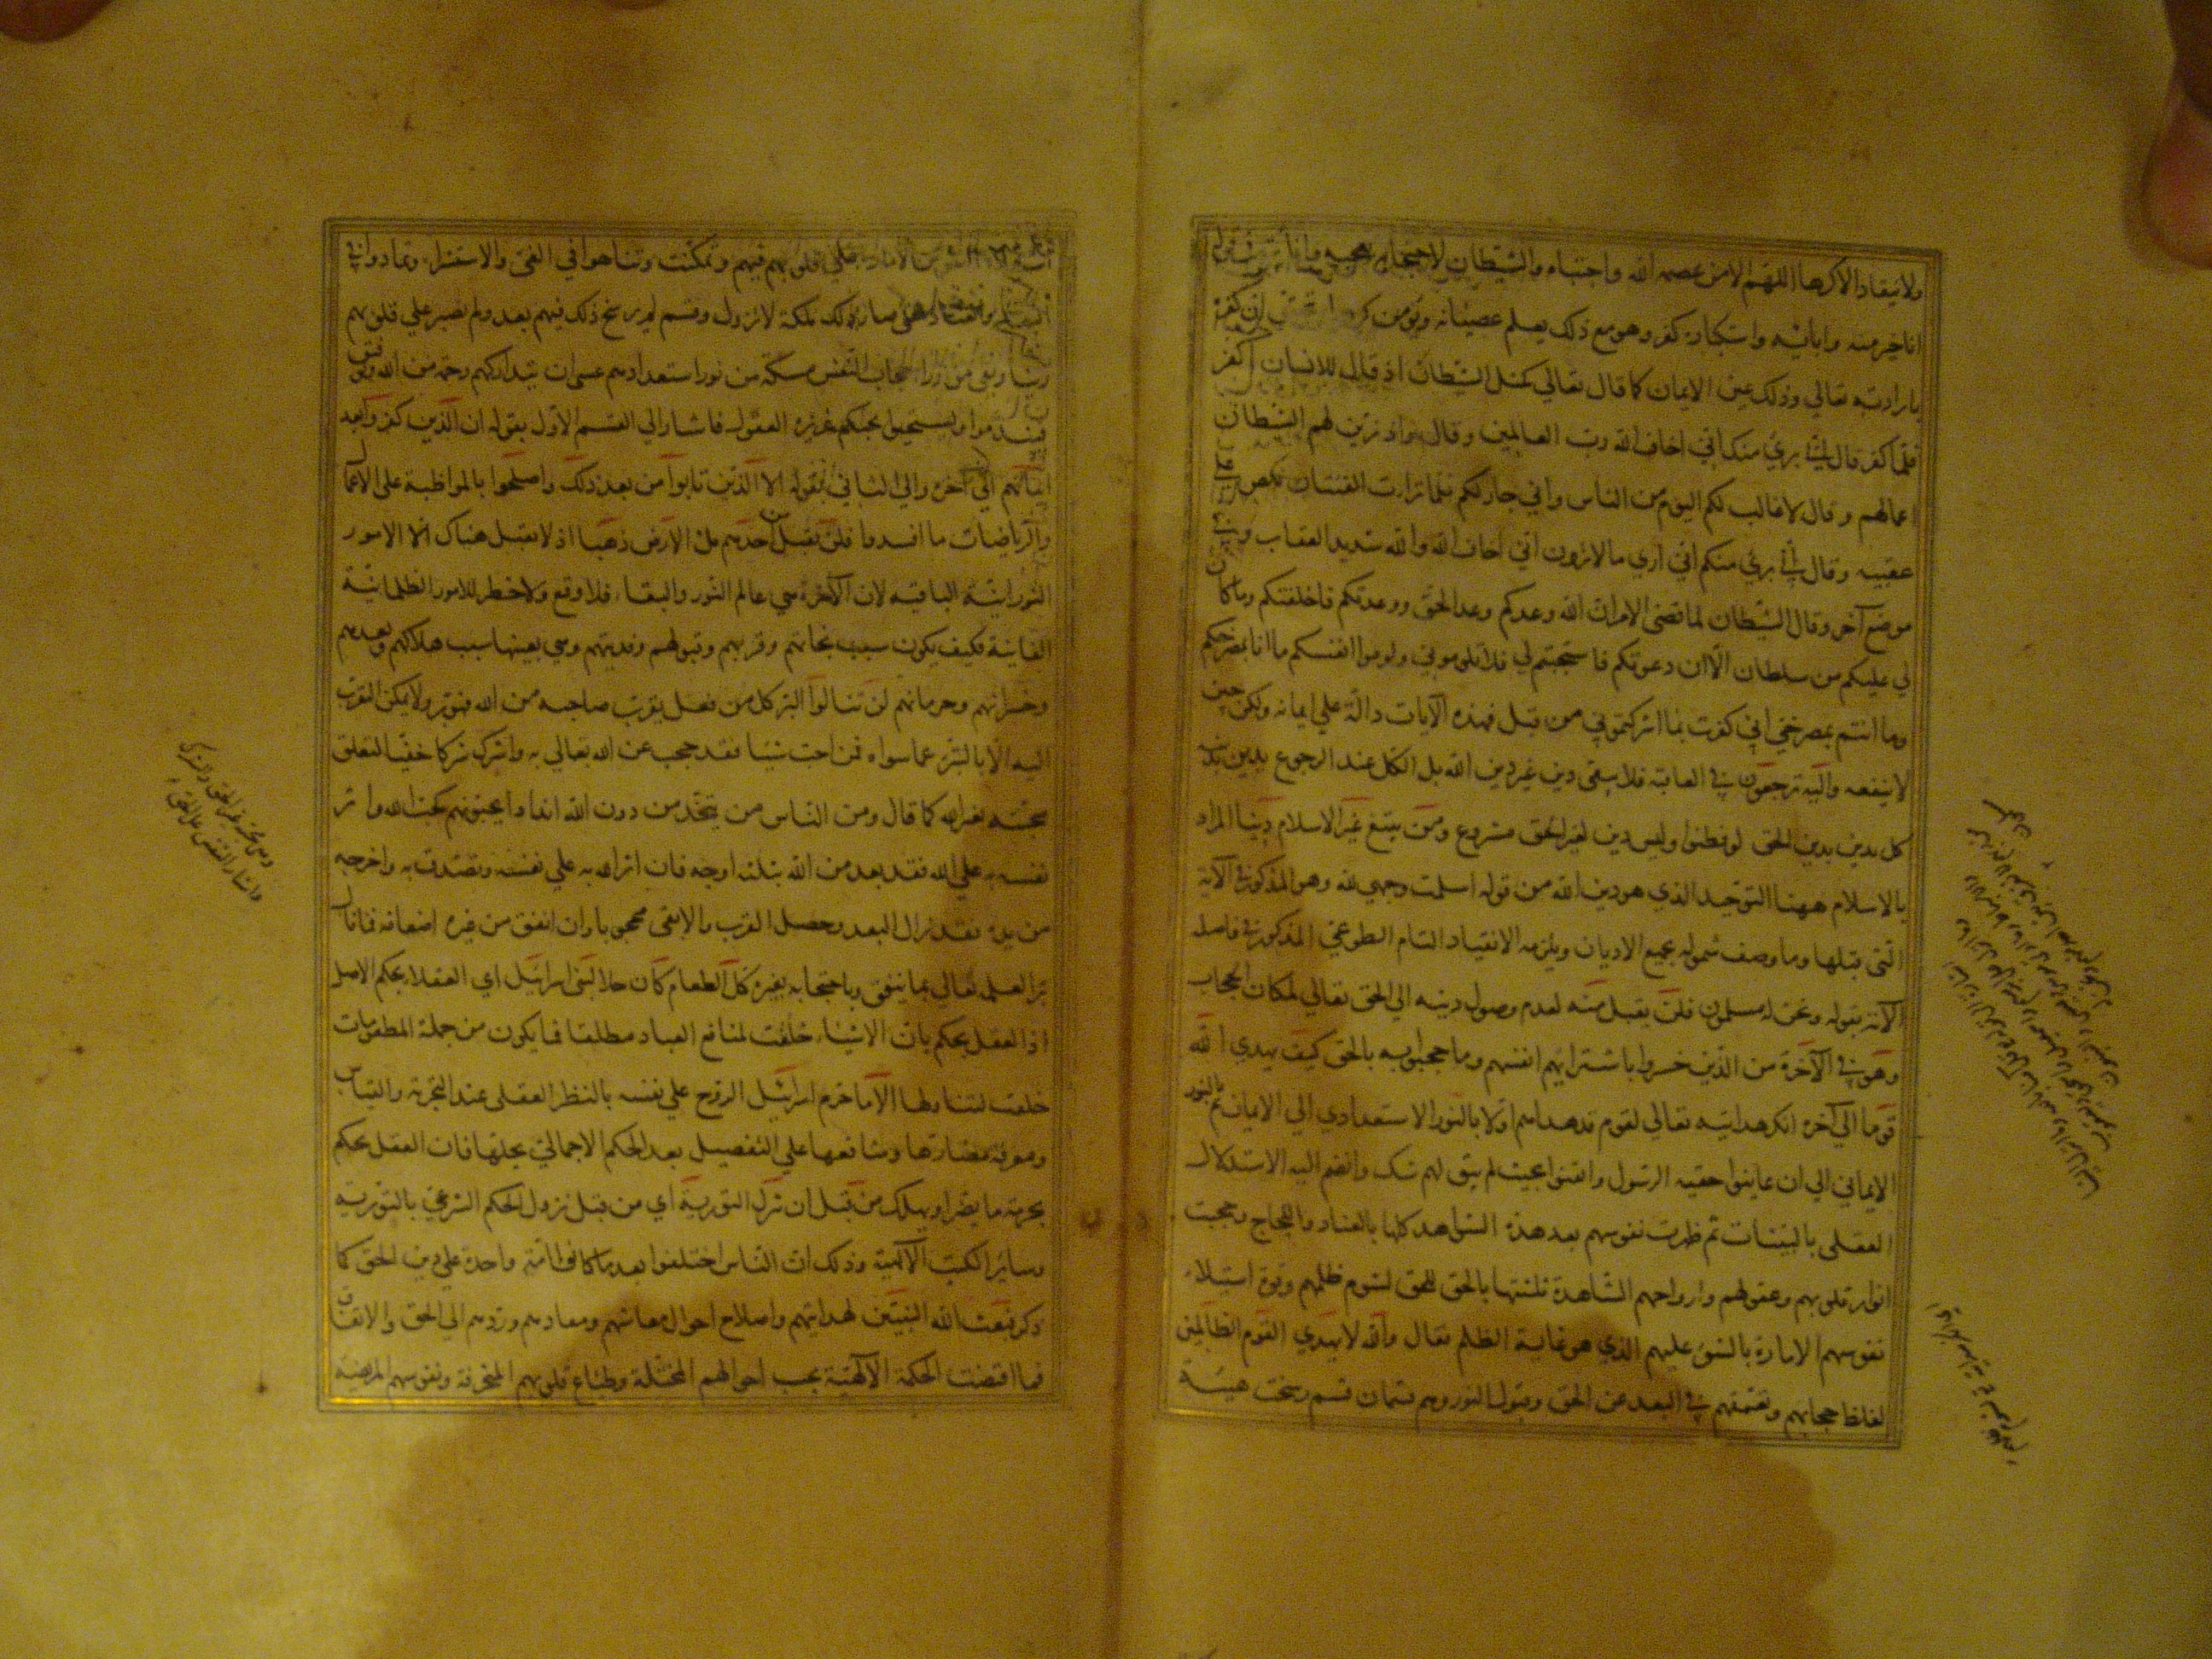 ولا ينقاد الا كرها اللهم الا من عصمه الله واجتباه والشيطان لاحتجابه
انا خير منه وابائيه واستكباره كفر وهو مع ذلك يعلم عصيانه ويؤمن
بارادته تعالي وذلك عين الايمان كما قال تعالي كمثل الشيطان اذ قال للانسان اكفر
فلما كفر قال اني بريء منك اني اخاف الله رب العالمين وقال واذ زين لهم الشيطان
اعمالهم وقال لا غالب لكم اليوم من الناس واني جار لكم فلما تراءت الفئتان نكص علي
عقبيه وقال اني بريء منكم اني اري ما لا ترون اني اخاف الله والله شديد العقاب وفي
موضع آخر وقال الشيطان لما قضي الامر ان الله وعدكم وعد الحق ووعدتكم فاخلفتكم وما كان
لي عليكم من سلطان الا ان دعوتكم فاستجبتم لي فلا تلوموني ولوموا انفسكم ما انا بمصرخكم
وما انتم بمصرخي اني كفرت بما اشركتموني من قبل فهذه الآيات دالة علي ايمانه ولكن حين
لا ينفعه واليه ترجعون في العاقبة فلا يبقي دين غير دين الله بل الكل عند الرجوع يدين بدينه
كل بدين يدين الحق لو فطنوا وليس دين لغير الحق مشروع ومن يبتغ غير الاسلام دينا المراد
بالاسلام ههنا التوحيد الذي هو دين الله من قوله اسلمت وجهي لله وهو المذكور في الآية
التي قبلها وما وصف شموله بجميع الاديان ويلزمه الانقياد التام الطوعي المذكور في فاصلة
الآية بقوله ونحن له مسلمون فلن يقبل منه لعدم وصول دينه الي الحق تعالي لمكان الحجاب
وهو في الآخرة من الذين خسروا باشترائهم انفسهم وما حجبوا به بالحق كيف يهدي الله
قوما الي آخره انكر هدايته تعالي لقوم قد هداهم اولا بالنور الاستعدادي الي الايمان ثم بالنور
الايماني الي ان عاينوا حقية الرسول وايقنوا بحيث لم يبق لهم شك وانضم اليه الاستدلال
العقلي بالبينات ثم ظهرت نفوسهم بعد هذه الشواهد كلها بالعناد واللجاج وحجبت
انوار قلوبهم وعقولهم وارواحهم الشاهدة ثلثتها بالحق للحق لشوم ظلمهم وقوة استيلاء
نفوسهم الامارة بالسوء عليهم الذي هو غاية الظلم فقال والله لا يهدي القوم الظالمين
لغلظ حجابهم وتعمقهم في البعد عن الحق وقبول النور وهم قسمان قسم رسخت هيئة
قلوبهم فيهم وتمكنت وتناهوا في الغي والاستشراء وتمادوا في
صار ذلك ملكة لا تزول وقسم لم يرسخ ذلك فيهم بعد ولم يصر علي قلوبهم
رينا ويبقي من وراء حجاب النفس مسكة من نور استعدادهم عسي ان يتداركهم رحمة من الله وتوفيق
فيندموا ويستحيوا بحكم غريزة العقول فاشار الي القسم الاول بقوله ان الذين كفروا بعد
ايمانهم الي آخره والي الثاني بقوله الا الذين تابوا من بعد ذلك واصلحوا بالمواظبة علي الاعمال
والرياضات ما افسدوا فلن تقبل من احدهم ملء الارض ذهبا اذ لا يقبل هناك الا الامور
النورانية الباقية لان الآخرة هي عالم النور والبقاء فلا وقع ولا خطر للامور الظلمانية
الفانية فكيف يكون سبب نجاتهم وقربهم وقبولهم وفديتهم وهي بعينها سبب هلاكهم وبعدهم
وخسرانهم وحرمانهم لن تنالوا البر كل من فعل يقرب صاحبه من الله فهو بر ولا يمكن القرب
اليه الا بالتبري عما سواه فمن احب شيئا فقد حجب عن الله تعالي به واشرك شركا خفيا لتعلق
محبته بغير الله كما قال ومن الناس من يتخذ من دون الله اندادا يحبونهم كحب الله واثر
نفسه به علي الله فقد بعد من الله بثلثة اوجه فان اثر الله به علي نفسه وتصدق به واخرجه
من يده فقد زال البعد وحصل القرب والا بقي محجوبا وان انفق من غيره اضعافه فما نال
برا لعلمه تعالي بما ينفق وباحتجابه بغيره كل الطعام كان حلا لبني اسرائيل اي العقلاء بحكم الاصل
اذ العقل يحكم بان الاشياء خلقت لمنافع العباد مطلقا فما يكون من جملة المطعومات
خلقت لتناولها الا ما حرم اسرائيل الروح علي نفسه بالنظر العقلي عند التجربة والقياس
ومعرفة مضارها ومنافعها علي التفصيل بعد الحكم الاجمالي بحلها فان العقل يحكم
بحرمة ما يضر او يهلك من قبل ان تنزل التورية اي من قبل نزول الحكم الشرعي بالتورية
وسائر الكتب الآلهية وذلك ان الناس اختلفوا بعد ما كانوا امة واحدة علي دين الحق كما
ذكر فبعث الله النبيين لهدايتهم واصلاح احوال معاشهم ومعادهم وردهم الي الحق والاتفاق
فما اقتضت الحكمة الآلهية بحسب احوالهم المختلة وطباع قلوبهم المنحرفة ونفوسهم المريضة